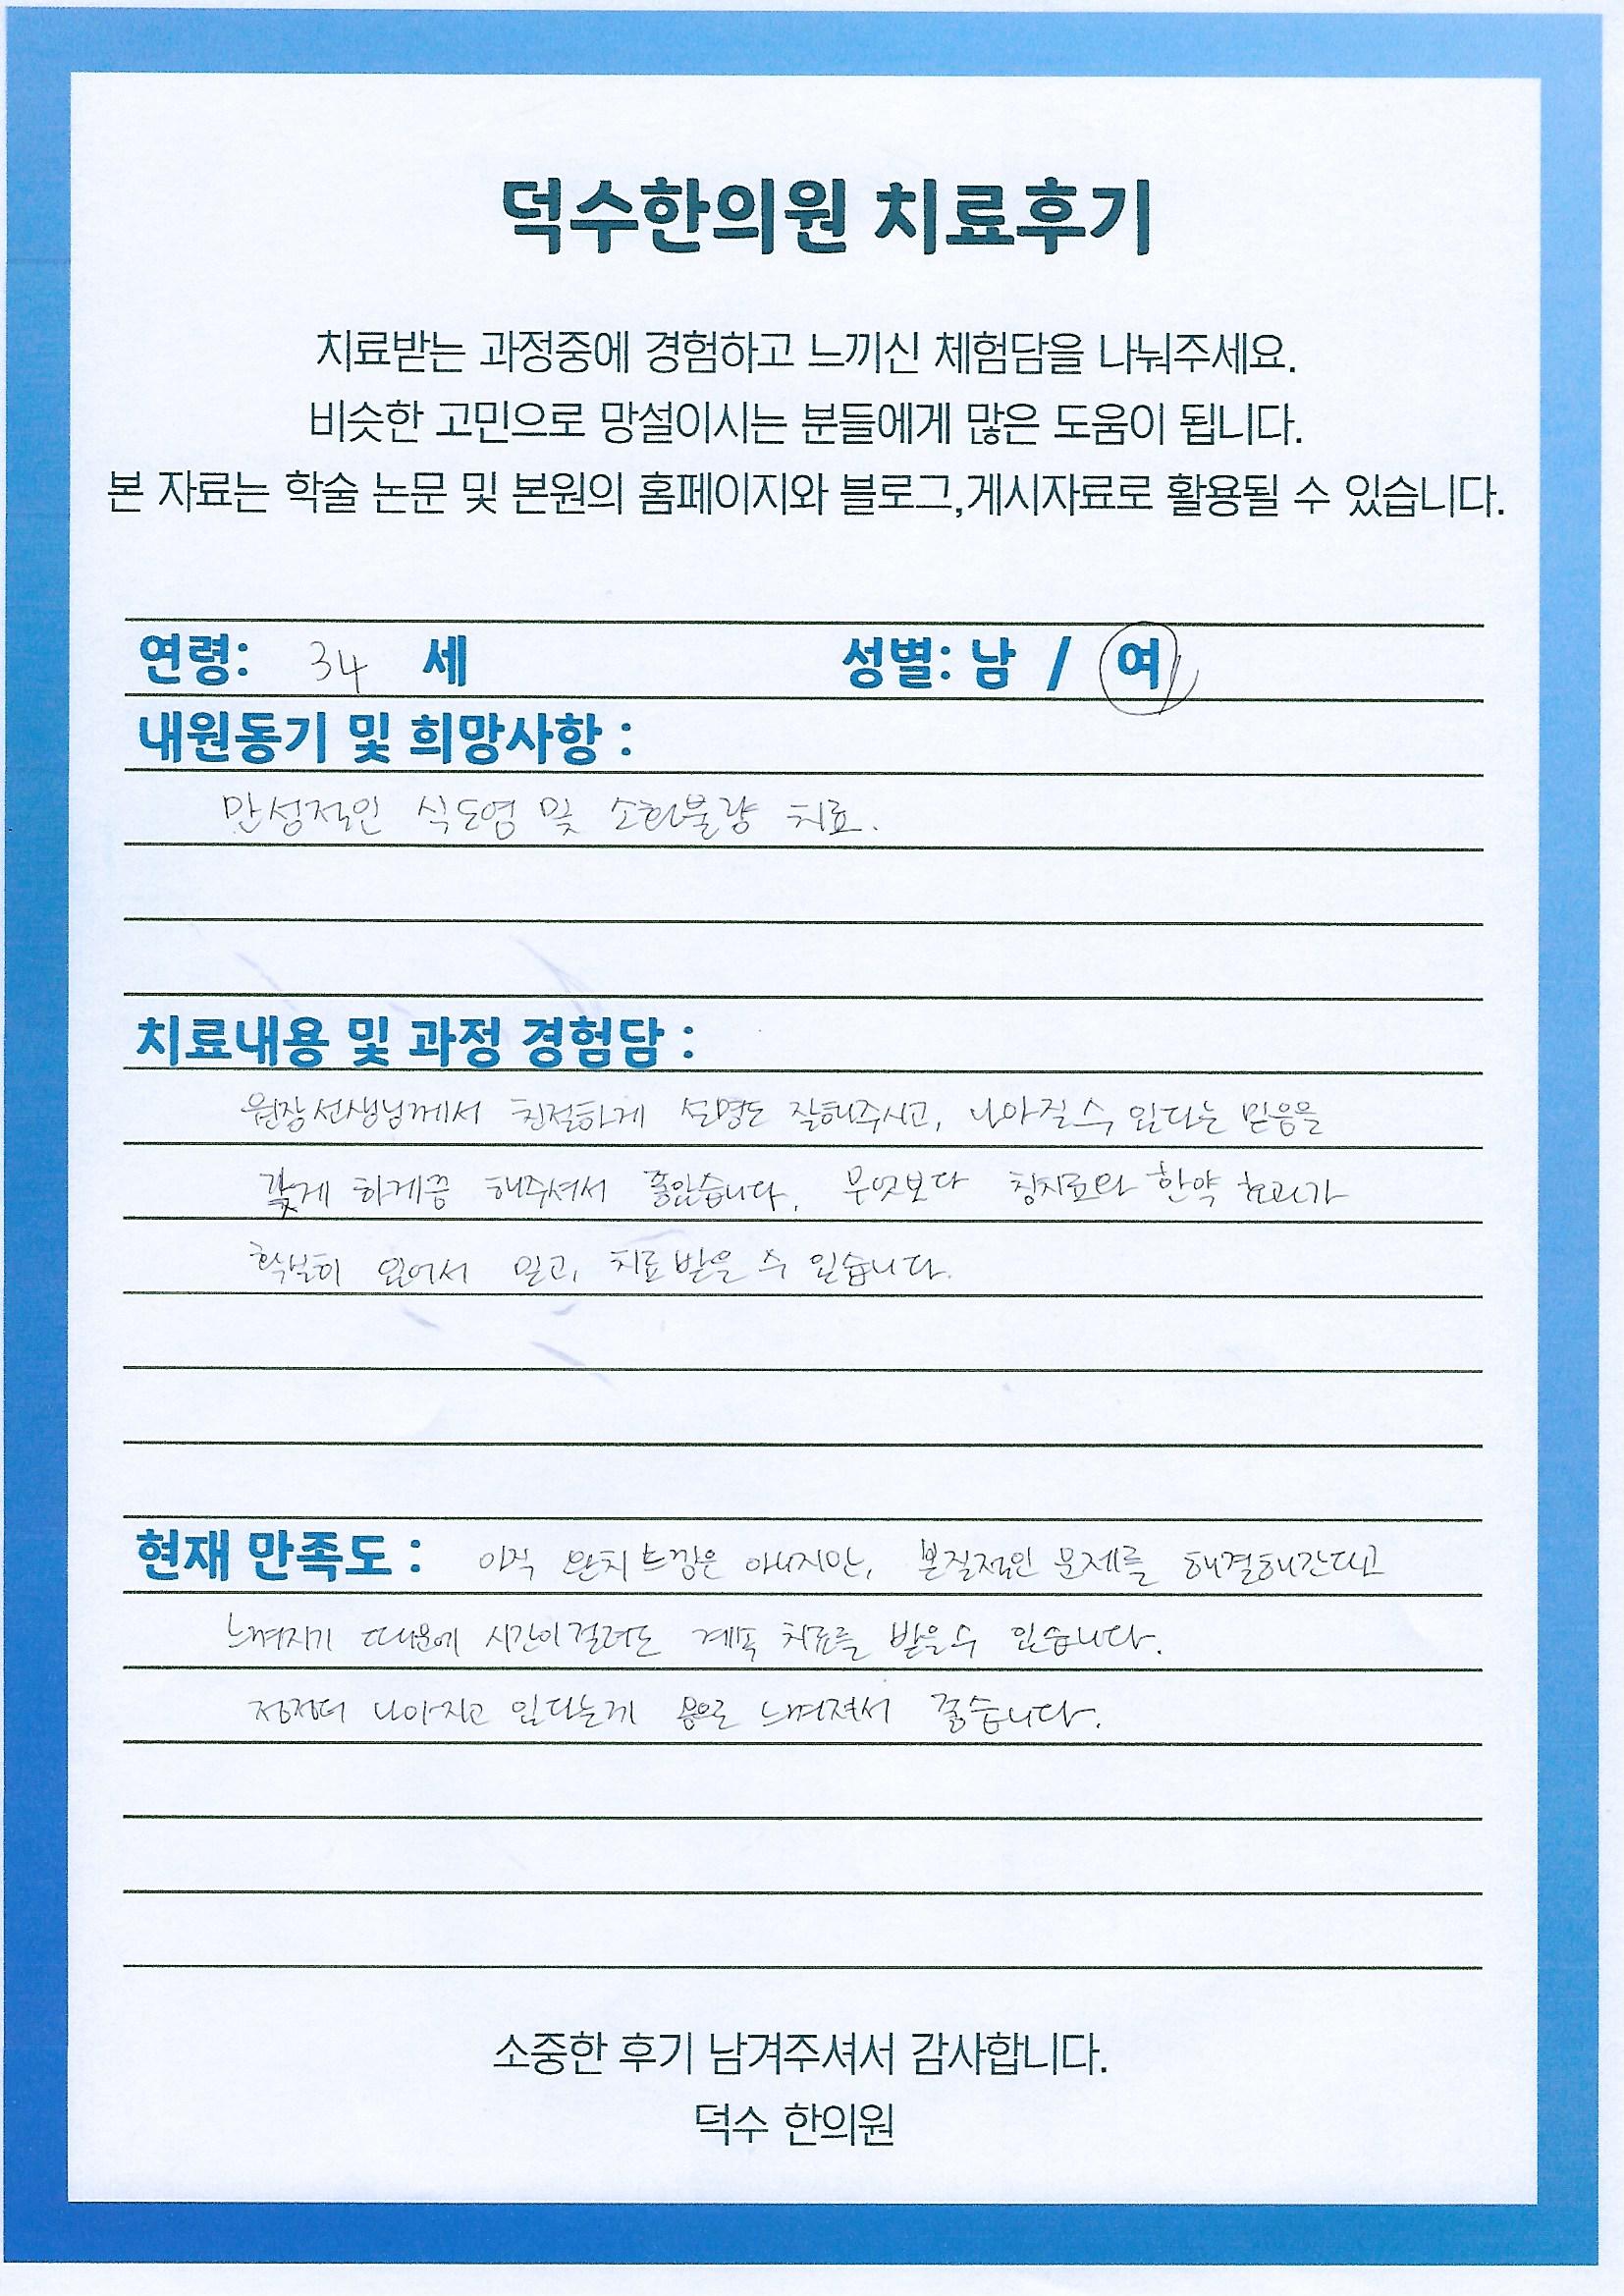 덕수한의원 치료후기
치료받는 과정중에 경험하고 느끼신 체험담을 나눠주세요.
비슷한 고민으로 망설이시는 분들에게 많은 도움이 됩니다.
본 자료는 학술 논문 및 본원의 홈페이지와 블로그,게시자료로 활용될 수 있습니다.
연령: 34 세 성별: 남 / 여
내원동기 및 희망사항 :
만성적인 식도염 및 소화불량 치료.
치료내용 및 과정 경험담 :
원장선생님께서 친절하게 설명도 잘해주시고, 나아질 수 있다는 믿음을
갖게 하게끔 해주셔서 좋았습니다. 무엇보다 침치료와 한약 효과가
확실히 있어서 믿고, 치료 받을 수 있습니다.
현재 만족도 : 아직 완치 느낌은 아니지만, 본질적인 문제를 해결해간다고
느껴지기 때문에 시간이 걸려도 계속 치료를 받을 수 있습니다.
점점더 나아지고 있다는게 몸으로 느껴져서 좋습니다.
소중한 후기 남겨주셔서 감사합니다.
덕수 한의원